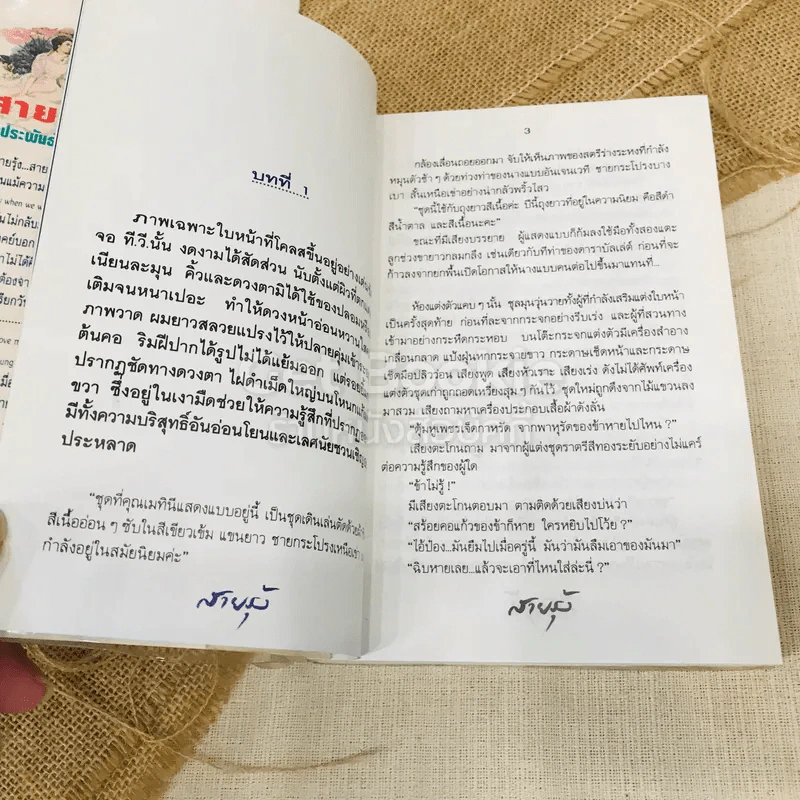 สาย
ประพันธ
บทที่ 1
ภาพเฉพาะใบหน้าที่โคลสขึ้นอยู่อย่างเด่น
จอ ที.วี.นั้น งดงามได้สัดส่วน นับตั้งแต่ผิวที่
เนียนละมุน คิ้วและดวงตามิได้ใช้ของปลอม
เติมจนหนาเปอะ ทำให้ดวงหน้าอ่อนหวาน
ภาพวาด ผมยาวสลวยแปรงไว้ให้ปลายคุ้มเข้า
ต้นคอ ริมฝีปากได้รูปไม่ได้แย้มออก แต่รอย
ปรากฏชัดทางดวงตา ไฝดำเม็ดใหญ่บนโหนก
ขวา ซึ่งอยู่ในเงามืดช่วยให้ความรู้สึกที่ปรากฏ
มีทั้งความบริสุทธิ์อันอ่อนโยนและเลศนัยชวน
ประหลาด
“ชุดที่คุณเมทินีแสดงแบบอยู่นี้ เป็นชุดเดินเล่นตัดด้วย
สีเนื้ออ่อน ๆ ซับในสีเขียวเข้ม แขนยาว ชายกระโปรงเหนือเข่า
กำลังอยู่ในสมัยนิยมค่ะ”
สายรุ้ง
3
กล้องเลื่อนถอยออกมา จับให้เห็นภาพของสตรีร่างระหงที่กำลัง
หมุนตัวช้า ๆ ด้วยท่วงท่าของนางแบบอันเจนเวที ชายกระโปรงบาง
เบา สั้นเหนือเข่าอย่างน่ากลัวพริ้วไสว
“ชุดนี้ใช้กับถุงยาวสีเนื้อค่ะ ปีนี้ถุงยาวที่อยู่ในความนิยม คือสีดำ
สีน้ำตาล และสีเนื้อนะคะ”
ขณะที่มีเสียงบรรยาย ผู้แสดงแบบก็ก้มลงใช้มือทั้งสองแตะ
ลูกช่วงขายาวกลมกลึง เช่นเดียวกับทีท่าของดาราบัลเล่ต์ ก่อนที่จะ
ก้าวลงจากยกพื้นเปิดโอกาสให้นางแบบคนต่อไปขึ้นมาแทนที่...
ห้องแต่งตัวแคบ ๆ นั้น ชุลมุนวุ่นวายทั้งผู้ที่กำลังเสริมแต่งใบหน้า
เป็นครั้งสุดท้าย ก่อนที่จะละจากกระจกอย่างรีบเร่ง และผู้ที่สวนทาง
เข้ามาอย่างกระหืดกระหอบ บนโต๊ะกระจกแต่งตัวมีเครื่องสำอาง
เกลื่อนกลาด แป้งฝุ่นหกกระจายขาว กระดาษเช็ดหน้าและกระดาษ
เช็ดมือปลิวว่อน เสียงพูด เสียงหัวเราะ เสียงเร่ง ดังไม่ได้ศัพท์เครื่อง
แต่งตัวชุดเก่าถูกถอดเหวี่ยงสุม ๆ กันไว้ ชุดใหม่ถูกดึงจากไม้แขวนลง
มาสวม เสียงถามหาเครื่องประกอบเสื้อผ้าดังลั่น
“ตุ้มหูเพชรเจ็ดกาหรัด จากพาหุรัดของข้าหายไปไหน ?”
เสียงตะโกนถาม มาจากผู้แต่งชุดราตรีสีทองระยับอย่างไม่แคร์
ต่อความรู้สึกของผู้ใด
“ข้าไม่รู้ !”
มีเสียงตะโกนตอบมา ตามติดด้วยเสียงบ่นว่า
“สร้อยคอแก้วของข้าก็หาย ใครหยิบไปโว้ย ?”
“ไอ้ป๋อง...มันยืมไปเมื่อครู่นี้ มันว่ามันลืมเอาของมันมา”
“ฉิบหายเลย...แล้วจะเอาที่ไหนใส่ล่ะนี่ ?”
สายรุ้ง